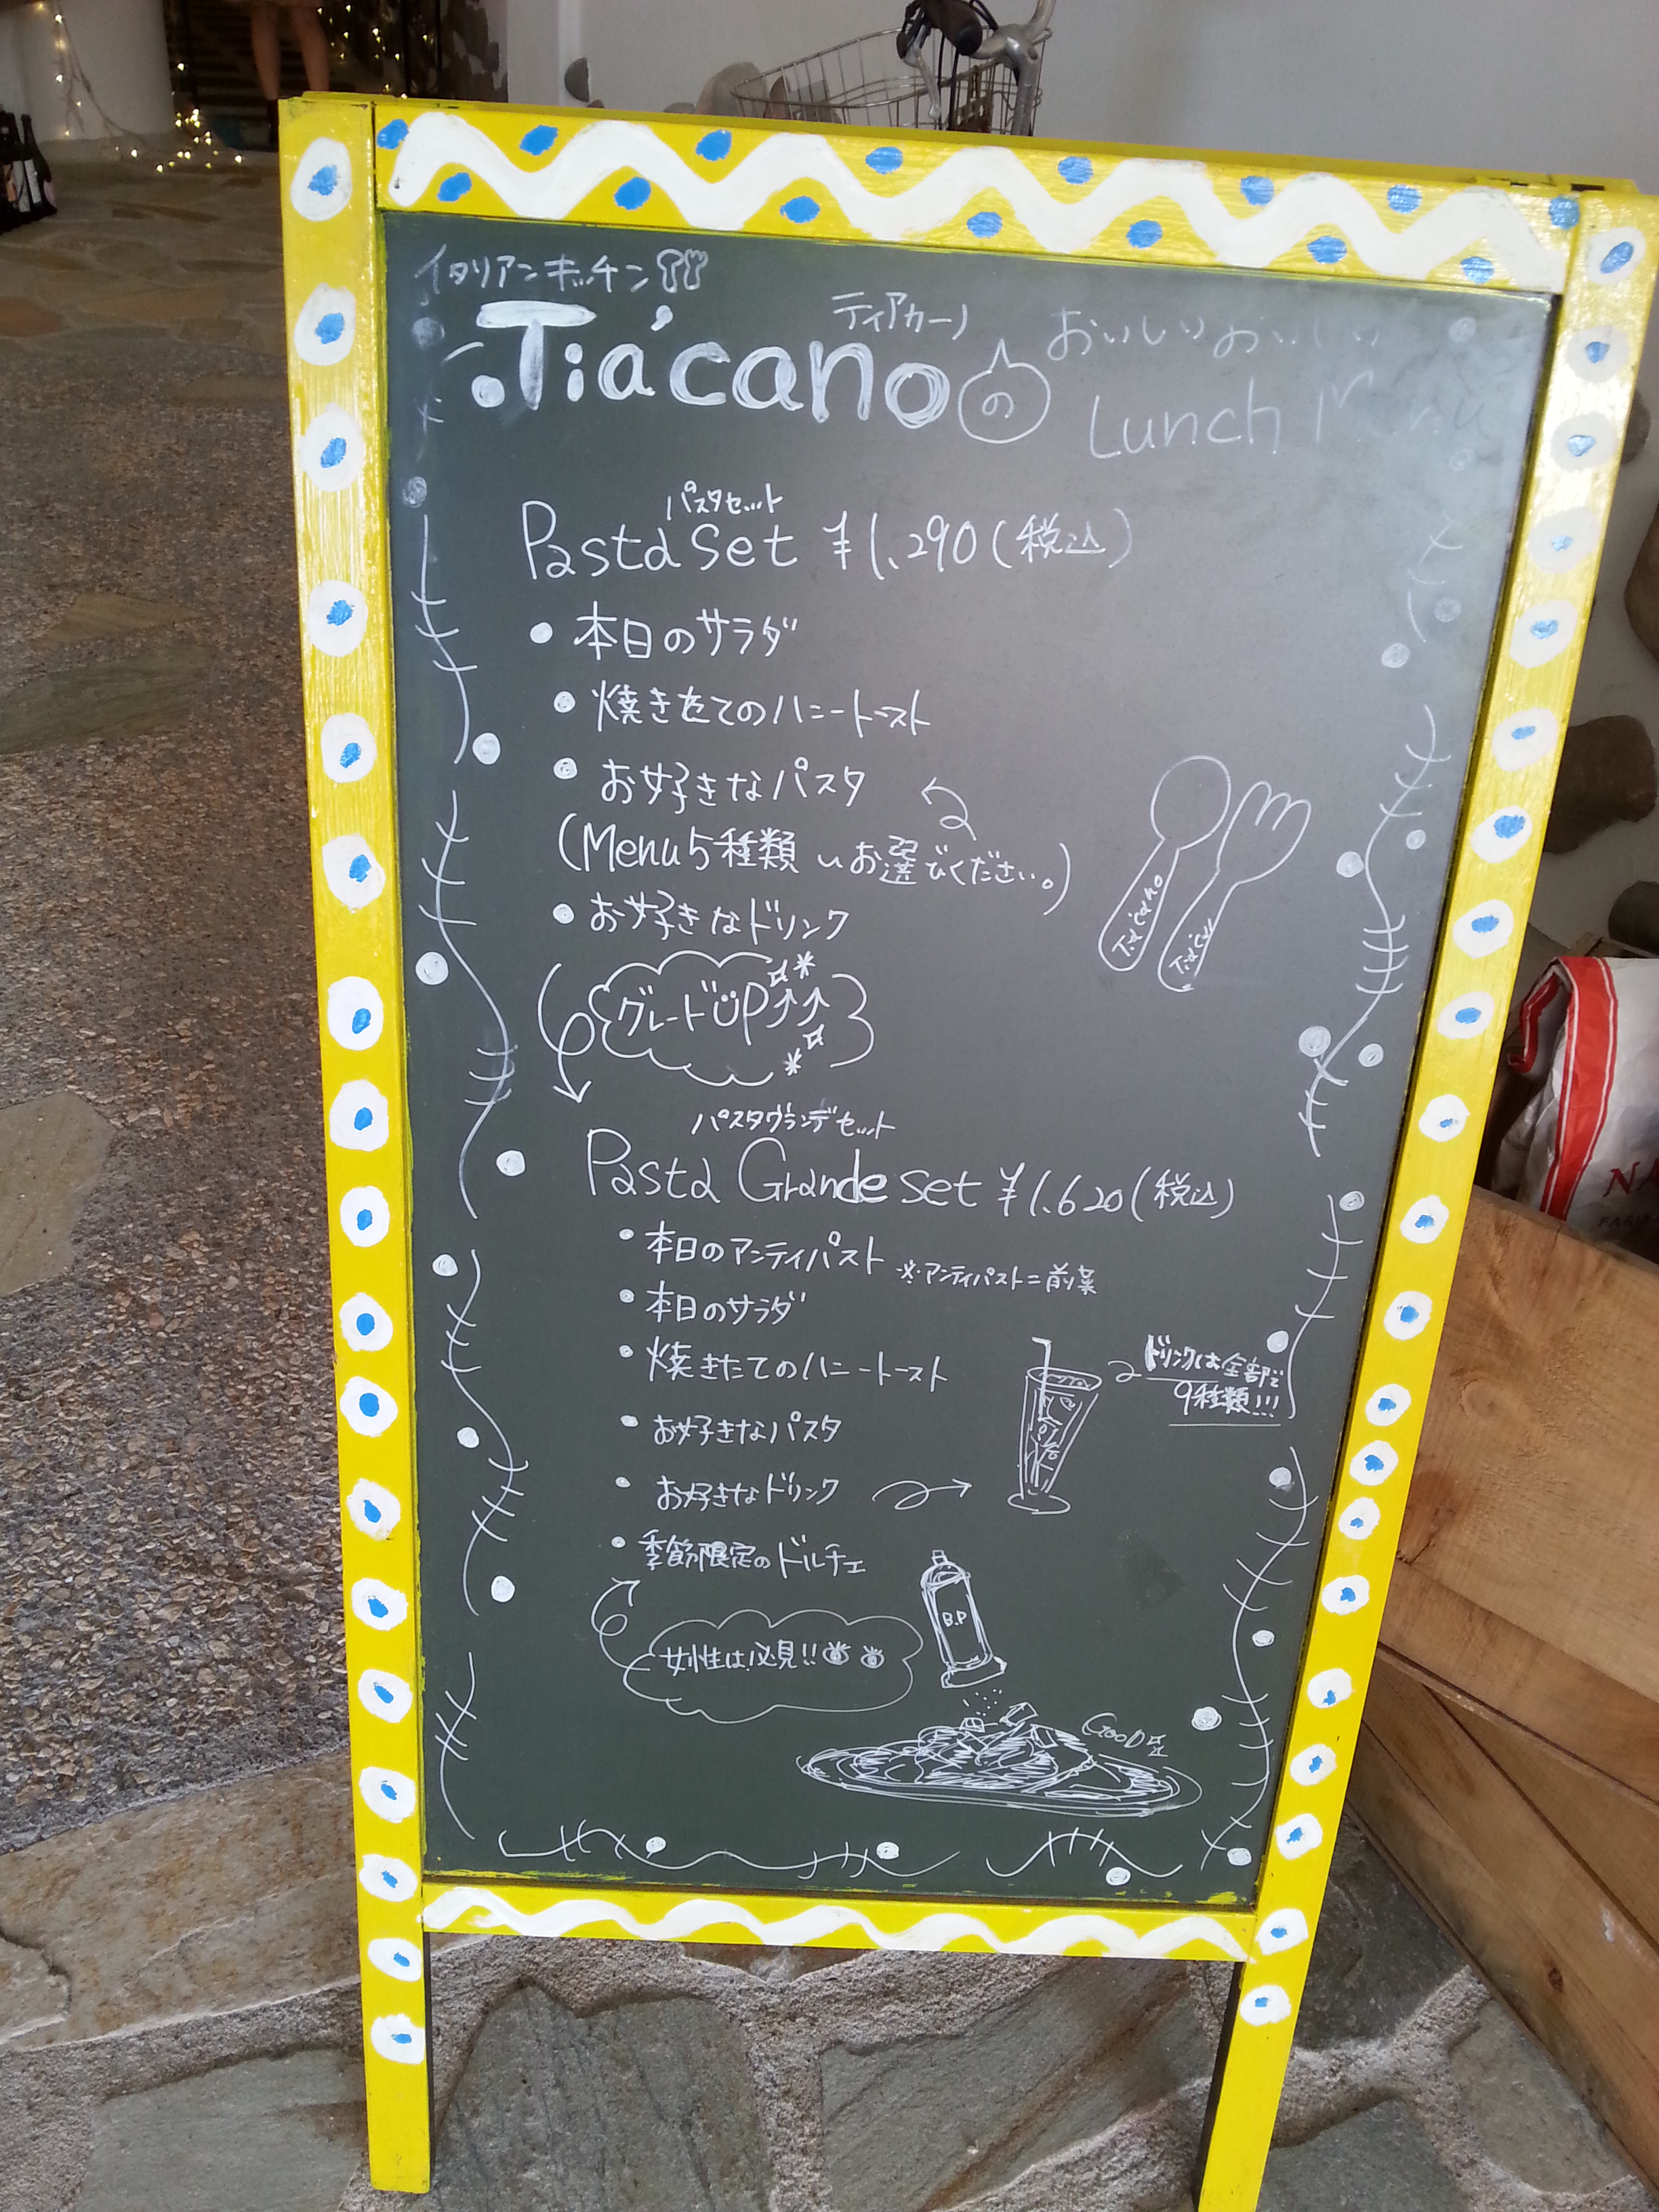 イタリアンキッチン
ティアカーノ
Tiácano の
おいしいおいしい
Lunch Menu
パスタセット
Pasta Set ¥1,290(税込)
• 本日のサラダ
• 焼きたてのハニートースト
• お好きなパスタ
(Menu5種類 お選びください。)
• お好きなドリンク
グレードUP↑↑
パスタグランデセット
Pasta Grande set ¥1.620(税込)
• 本日のアンティパスト ※アンティパスト=前菜
• 本日のサラダ
• 焼きたてのハニートースト
• お好きなパスタ
• お好きなドリンク
ドリンクは全部で
9種類!!!
• 季節限定のドルチェ
女性は必見!!
Tiácano
B.P
GooD
NA